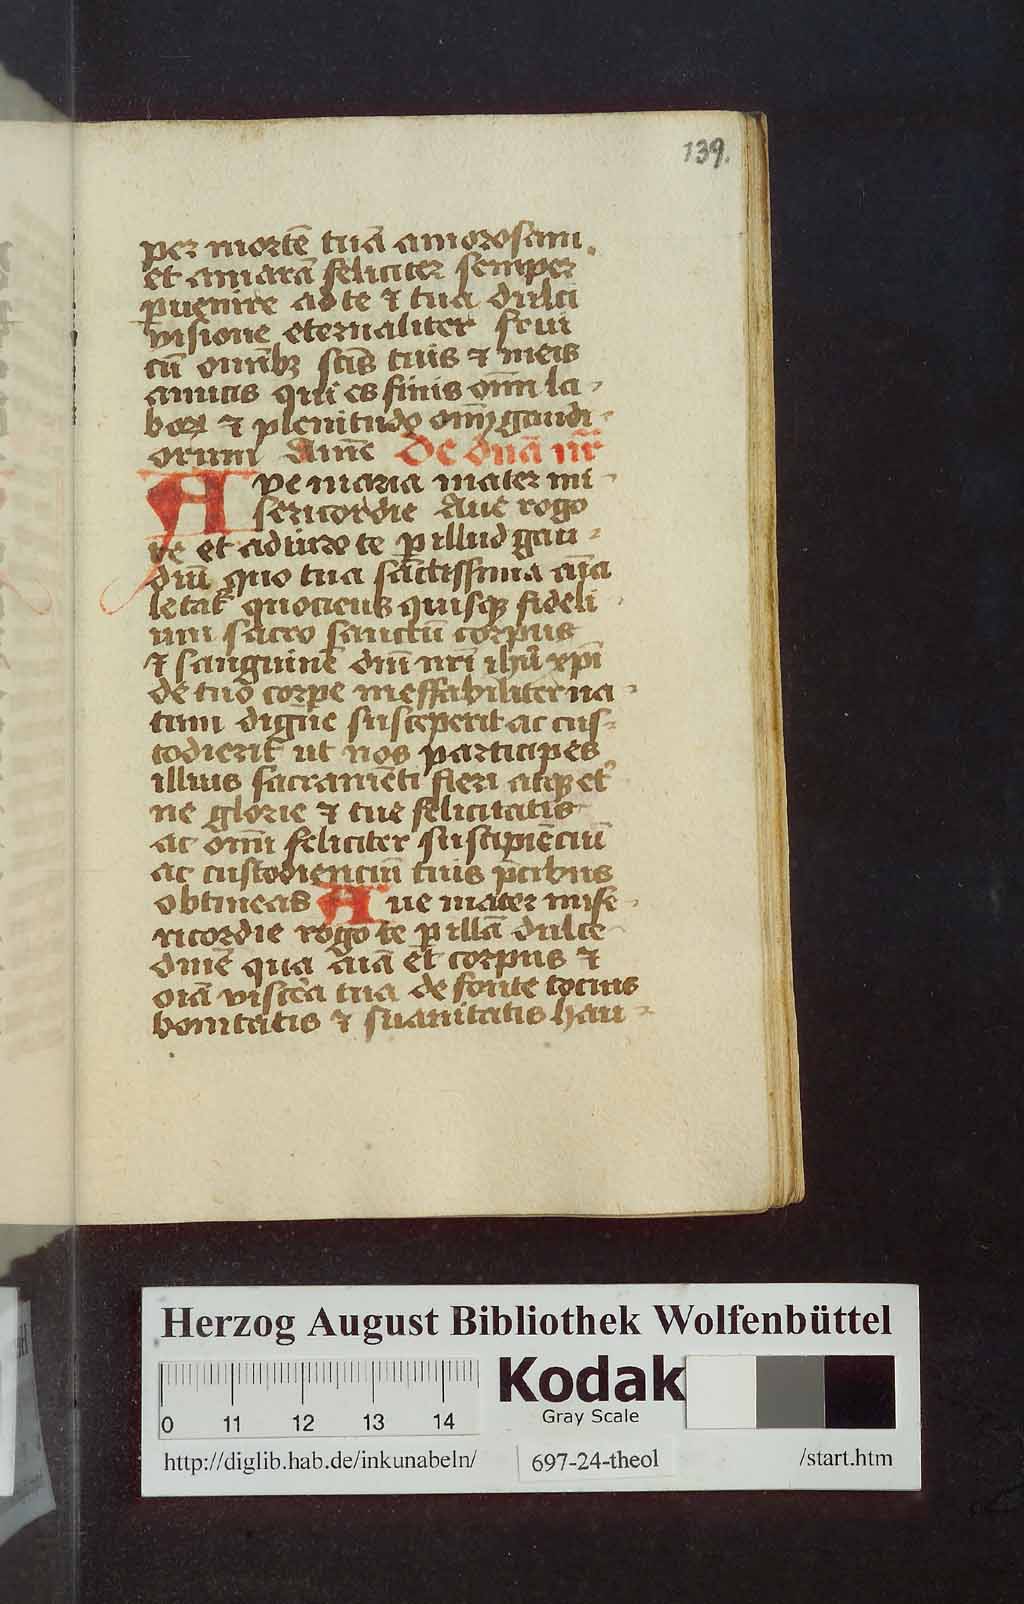 139.
per mortē tuā amorosam.
et amarā feliciter semper
ꝑuenire ad te ⁊ tua dulci
visione eternaliter frui
cū omnibꝫ scīs tuis ⁊ meis
amicis qui es finis om̄ la-
boꝝ ⁊ plenitudo om̄ gaudi-
orum Amē De dnā nr̄
Ave maria mater mi-
sericordie Aue rogo
te et adiuro te ꝑ illud gau-
diū quo tua sāctissima aīa
letat᷑ quociens quisqꝫ fideli-
um sacro sanctū corpus
⁊ sanguinē dn̄i nr̄i ihū xp̄i
de tuo corpe ineffabiliter na-
tum digne susceperit ac cus-
todierit ut nos participes
illius sacramēti fieri atqꝫ et᷑
ne glorie ⁊ tue felicitatis
ac om̄i feliciter suscipiēciū
ac custodienciū tuis p̄cibus
obtineas Aue mater mise-
ricordie rogo te ꝑ illā dulce-
dinē qua aīā et corpus ⁊
oīā viscēa tua de fonte tocius
bonitatis ⁊ suauitatis hau-
Herzog August Bibliothek Wolfenbüttel
0 11 12 13 14
Kodak
Gray Scale
http://diglib.hab.de/inkunabeln/ 697-24-theol /start.htm